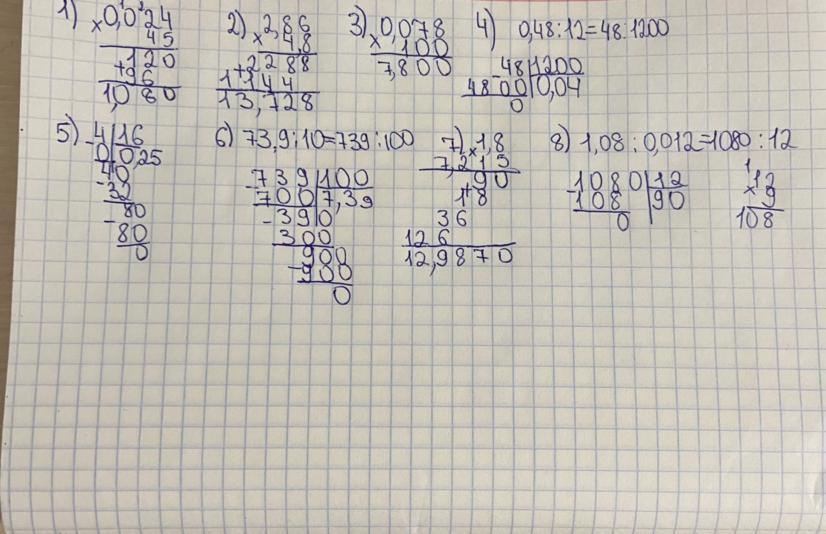 1) × 0,024
45
120
+ 96
1,080
2) × 2,86
4,8
2288
+ 1144
13,728
3) × 0,078
100
7,800
4) 0,48:12=48:1200
48|1200
4800|0,04
0
5) -4|16
0|0,25
40
-32
80
-80
0
6) 73,9:10=739:100
-739|100
700|7,39
-390
300
900
-900
0
7) × 1,8
7,215
90
+18
36
126
12,9870
8) 1,08:0,012=1080:12
-1080|12
108|90
0
1
× 12
9
108